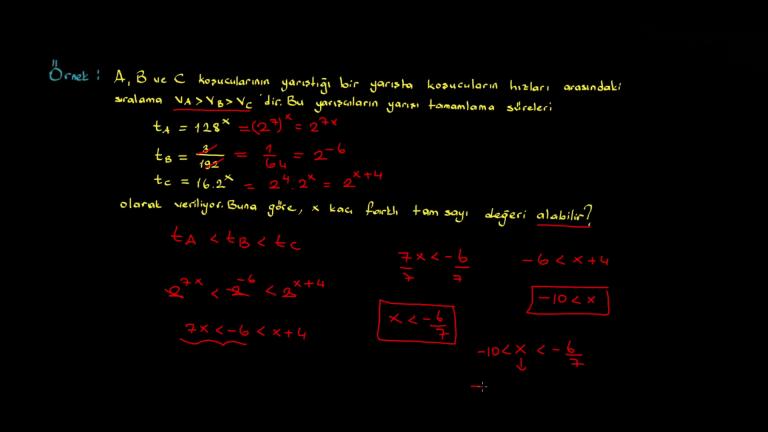 Örnek : A, B ve C koşucularının yarıştığı bir yarışta koşucuların hızları arasındaki
sıralama V_A > V_B > V_C 'dir. Bu yarışçıların yarışı tamamlama süreleri
t_A = 128^x = (2^7)^x = 2^{7x}
t_B = 3/192 = 1/64 = 2^{-6}
t_C = 16.2^x = 2^4 . 2^x = 2^{x+4}
olarak veriliyor. Buna göre, x kaç farklı tam sayı değeri alabilir?
t_A < t_B < t_C
2^{7x} < 2^{-6} < 2^{x+4}
7x < -6 < x+4
7x/7 < -6/7
x < -6/7
-6 < x+4
-10 < x
-10 < x < -6/7
↓
-